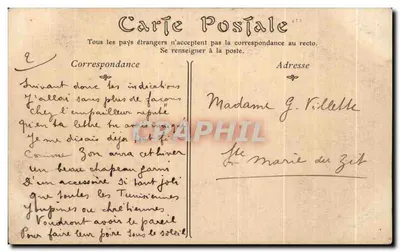 Carte Postale
Tous les pays étrangers n'acceptent pas la correspondance au recto.
Se renseigner à la poste.
Correspondance
Adresse
2
Suivant donc tes indications
J'allai sans plus de façons
Chez l'empailleur réputé
Qu'en ta lettre tu
Je me disais déjà
Comme Zon aura cet hiver
un beau chapeau garni
D'un accessoire si tant joli
que toutes les Tunisiennes
Youpines ou chrétiennes
Voudront avoir le pareil
Pour faire leur poire sous le soleil
Madame G. Villette
Ste
Marie du Zit
CPARAMA